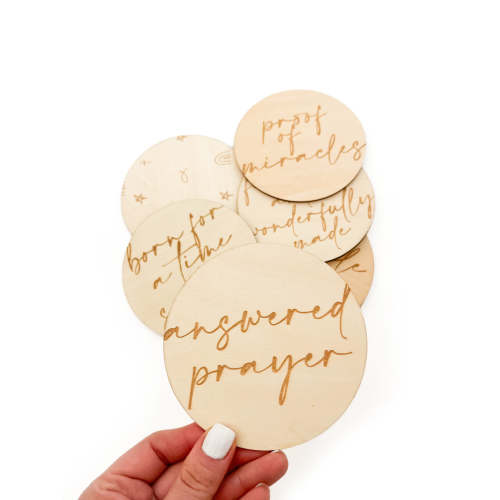 proof
of
miracles
wonderfully
made
Born for
a time
answered
prayer